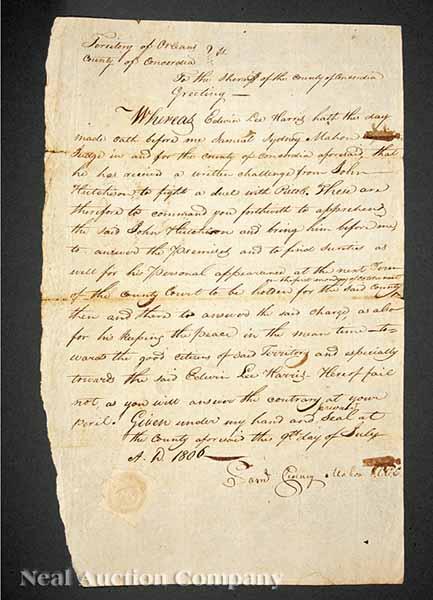 Territory of Orleans
County of Concordia
To the Sheriff of the County of Concordia
Greeting —
Whereas Edwin Lee Harris hath this day
made oath before me Samuel Sydney Mahon
Judge in and for the county of Concordia aforesaid, that
he has received a written challenge from John
Hutchison to fight a duel with These are
therefore to command you forthwith to apprehend
the said John Hutchison and bring him before me
to answer the Premises and to find sureties as
well for his Personal appearance at the next Term
on the first monday of
of the County Court to be holden for the said County
then and there to answer the said charge as also
for his keeping the peace in the mean time to-
wards the good citizens of said Territory and especially
towards the said Edwin Lee Harris. Hereof fail
not as you will answer the contrary at your
peril. Given under my hand and private Seal at
the County aforesaid this 9th day of July
A. D 1806
Mahon
Neal Auction Company